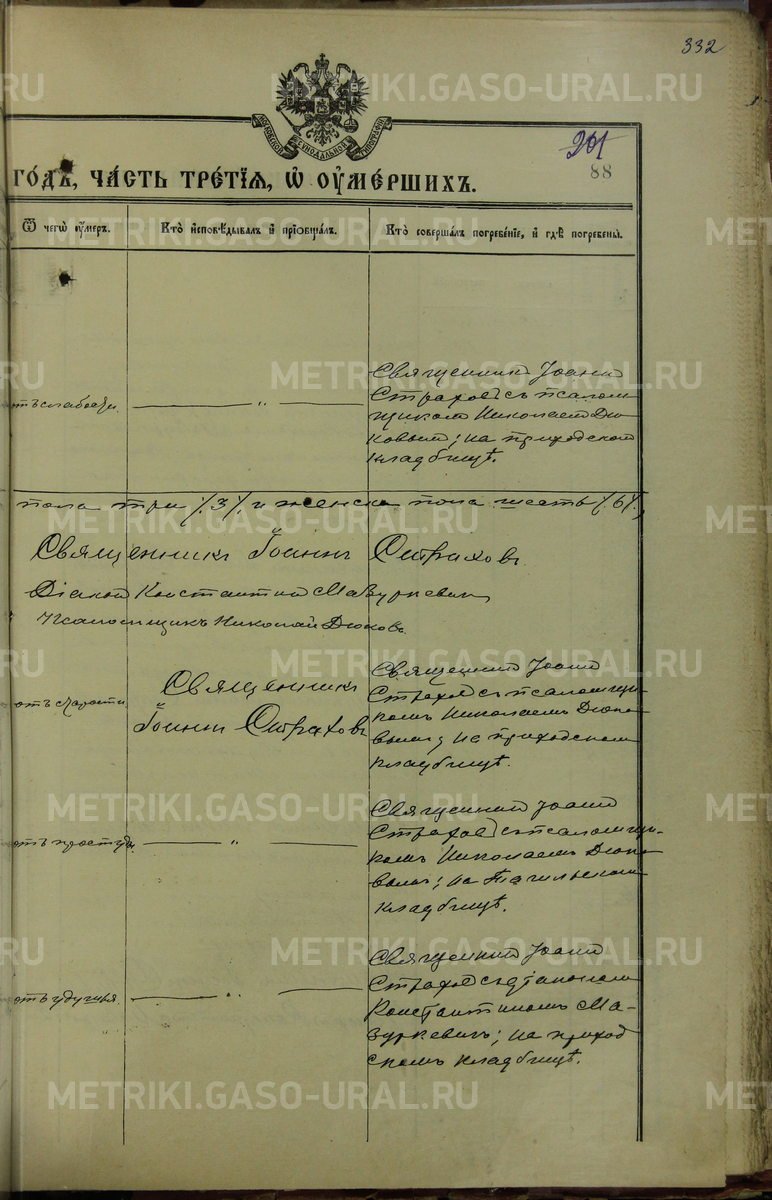 332
МОСКОВСКОЙ СѴНОДАЛЬНОЙ ТИПОГРАФІИ
201
88
ГОДЪ, ЧАСТЬ ТРЕТІѦ, Ѡ ОУМЕРШИХЪ.
Ѿ чегѡ оумеръ.
Кто исповѣдывалъ и пріобщалъ.
Кто совершалъ погребеніе, и гдѣ погребены.
отъ слабости.
— " —
Священникъ Іоаннъ
Страховъ съ псалом
щикомъ Николаемъ Дю
ковымъ; на приходскомъ
кладбищѣ.
пола три /3/, и женска пола шесть /6/,
Священникъ Іоаннъ Страховъ
Діаконъ Константинъ Мазуркевичъ
Псаломщикъ Николай Дюковъ.
отъ старости
Священникъ
Іоаннъ Страховъ
Священникъ Іоаннъ
Страховъ съ псаломщи-
комъ Николаемъ Дюко
вымъ; на приходскомъ
кладбищѣ.
отъ простуды.
— " —
Священникъ Іоаннъ
Страховъ съ псаломщи-
комъ Николаемъ Дюко
вымъ; на Тагильскомъ
кладбищѣ.
отъ удушья.
— " —
Священникъ Іоаннъ
Страховъ съ діакономъ
Константиномъ Ма-
зуркевичъ; на приход
скомъ кладбищѣ.
METRIKI.GASO-URAL.RU